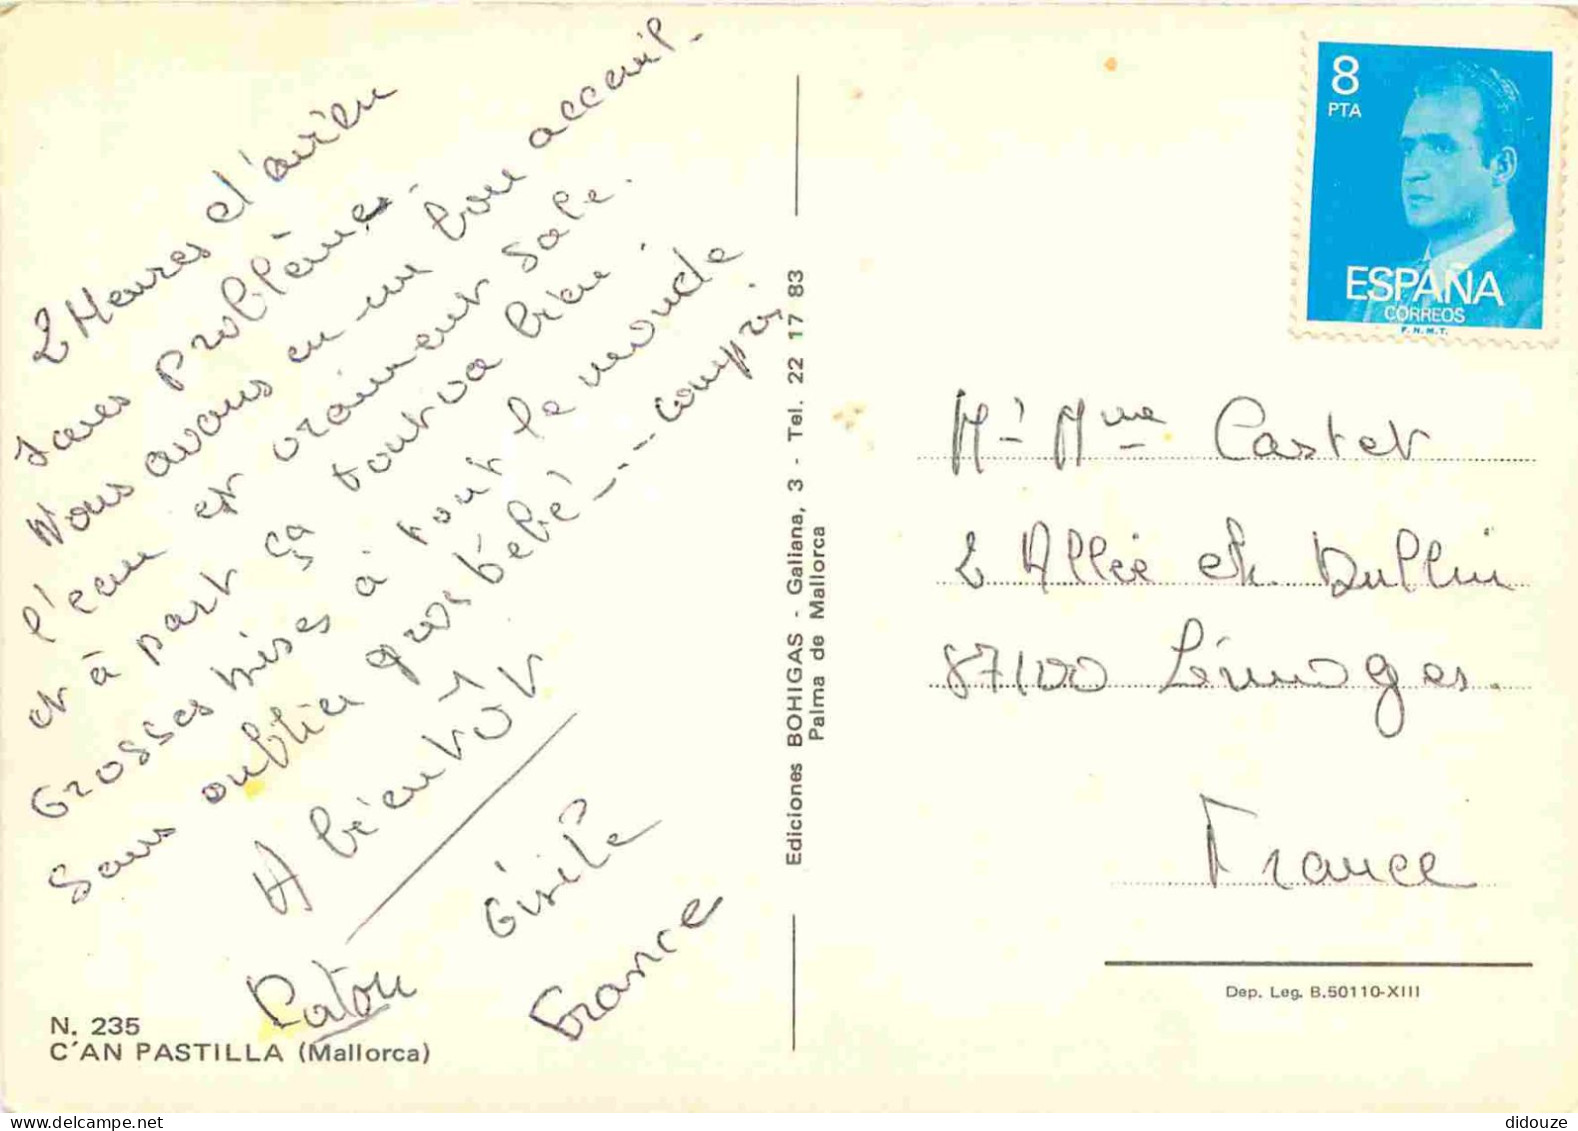 2 Heures d'avion
sans problèmes.
Nous avons eu un bon accueil.
l'eau est vraiment sale.
et à part ça tout va bien.
Grosses bises à tout le monde
Sans oublier gros bébé --- compris
A bientôt
Gisèle
Patou
France
N. 235
C'AN PASTILLA (Mallorca)
Ediciones BOHIGAS - Galiana, 3 - Tel. 22 17 83
Palma de Mallorca
8
PTA
ESPAÑA
CORREOS
F.N.M.T.
Mr Mme Castet
2 Allée ch. Dullin
87100 Limoges.
France
Dep. Leg. B.50110-XIII
didouze